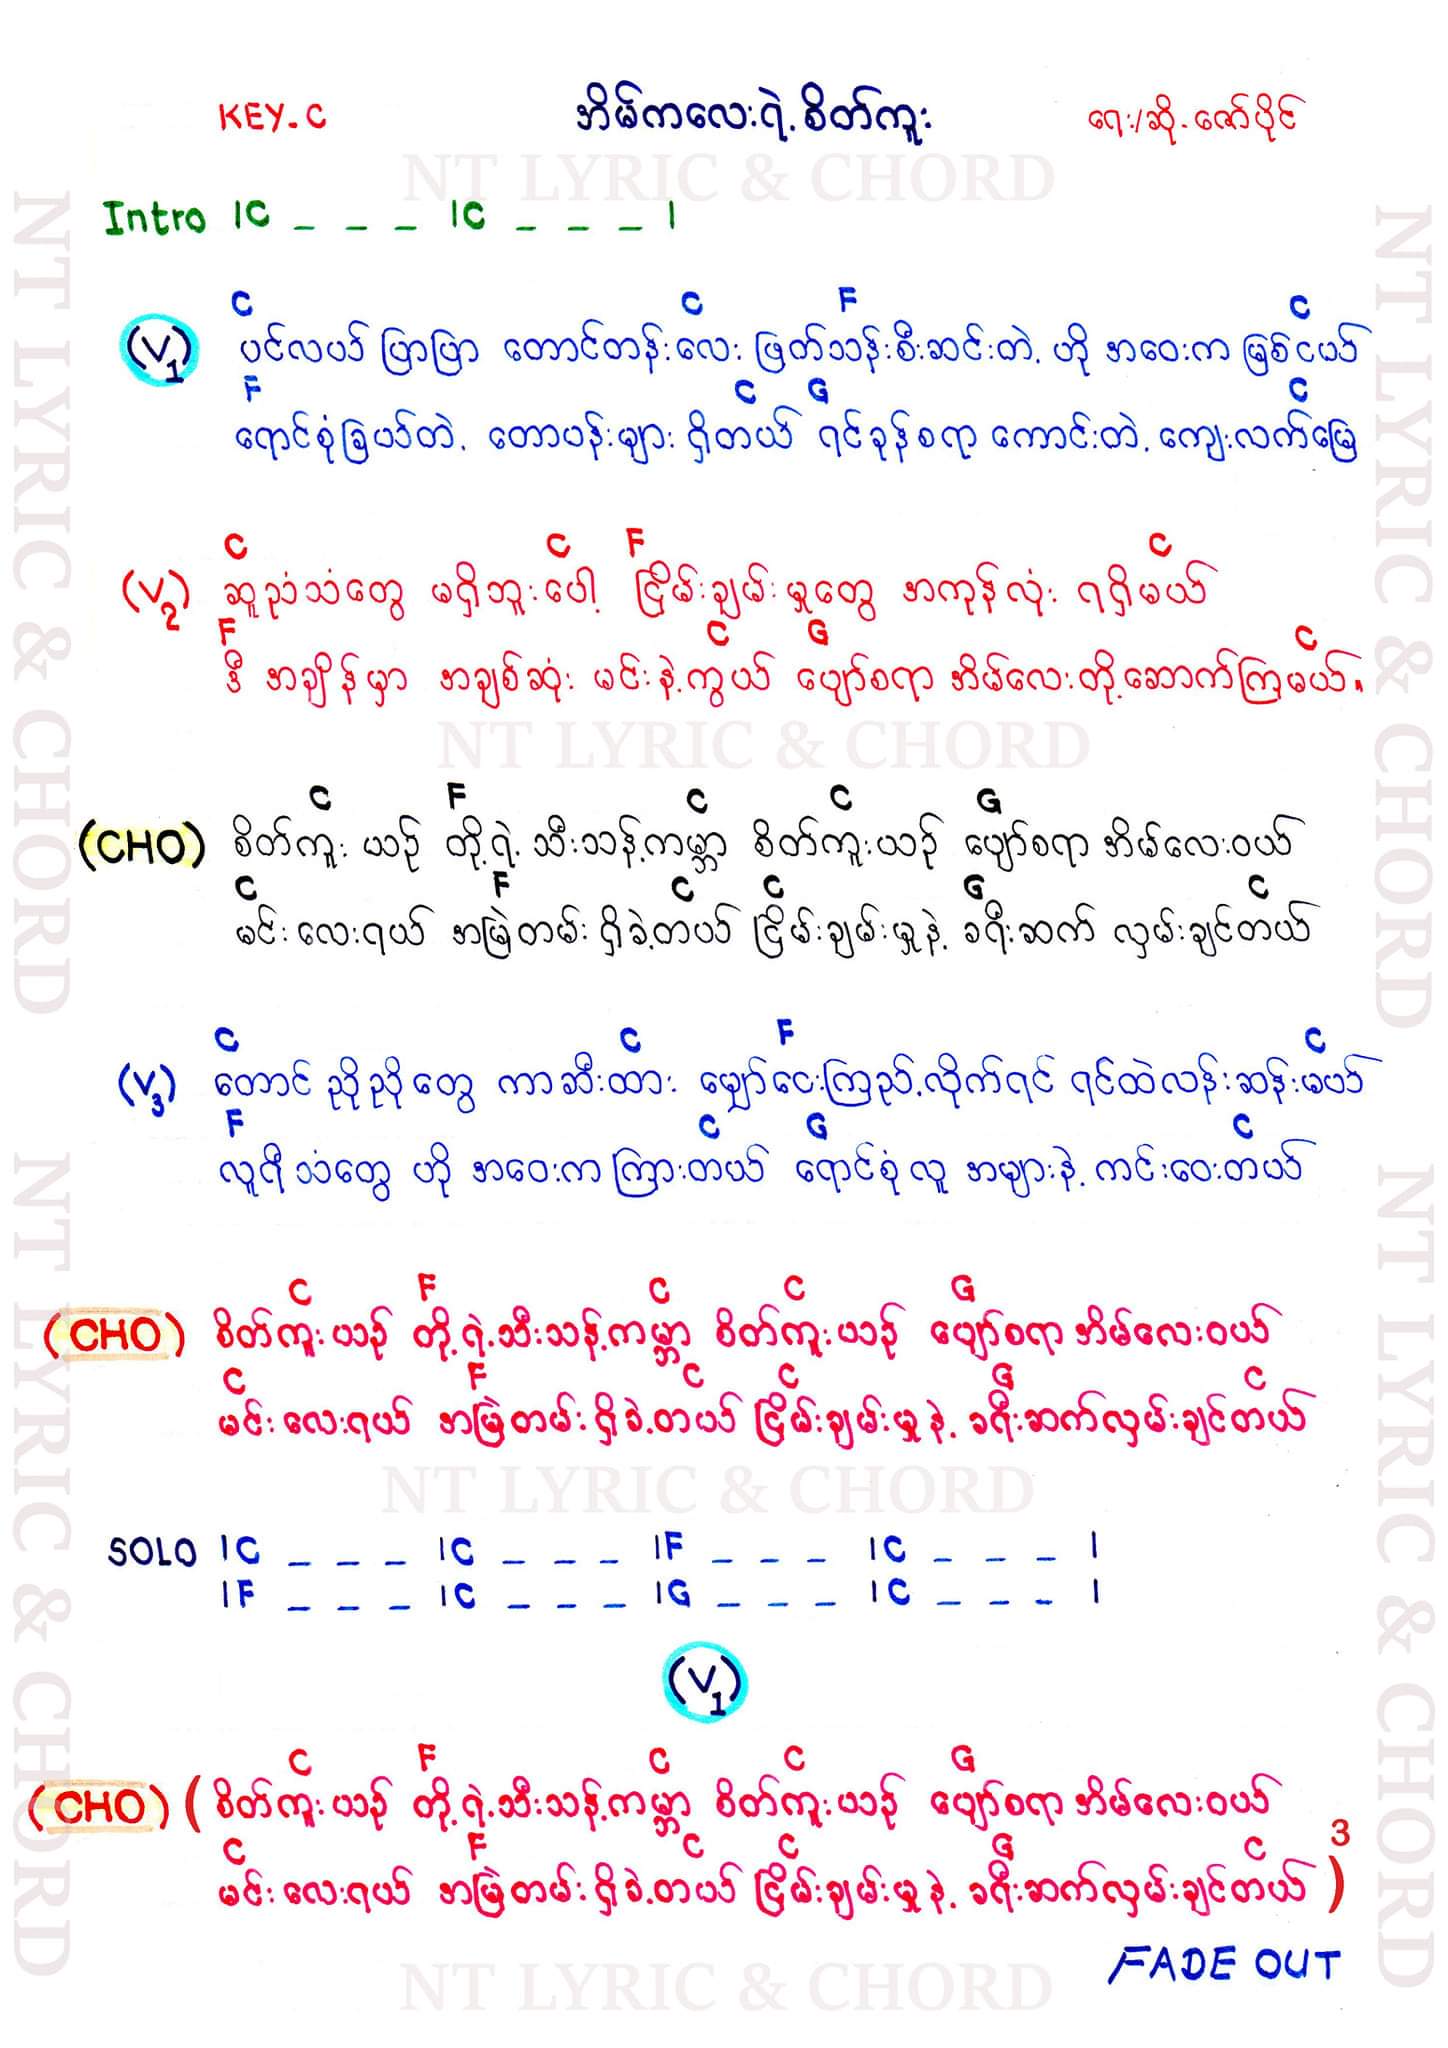 KEY-C အိမ်ကလေးရဲ့ စိတ်ကူး ရေး/ဆို-ဇော်ပိုင်
NT LYRIC & CHORD
Intro |C _ _ _ |C _ _ _ |
C C F C
(V1) ပင်လယ် ပြာပြာ တောင်တန်းလေး ဖြတ်သန်းစီးဆင်းတဲ့ ဟို အဝေးက မြစ်ငယ်
F C G C
ရောင်စုံခြယ်တဲ့ တောပန်းများ ရှိတယ် ရင်ခုန်စရာ ကောင်းတဲ့ ကျေးလက်မြေ
C C F C
(V2) ဆူညံသံတွေ မရှိဘူးပေါ့ ငြိမ်းချမ်းမှုတွေ အကုန်လုံး ရရှိမယ်
F C G C
ဒီ အချိန်မှာ အချစ်ဆုံး မင်းနဲ့ကွယ် ပျော်စရာ အိမ်လေးတို့ဆောက်ကြမယ်။
NT LYRIC & CHORD
C F C C G
(CHO) စိတ်ကူး ယဉ် တို့ရဲ့ သီးသန့်ကမ္ဘာ စိတ်ကူးယဉ် ပျော်စရာ အိမ်လေးဝယ်
C F C C G C
မင်းလေးရယ် အမြဲတမ်းရှိခဲ့တယ် ငြိမ်းချမ်းမှုနဲ့ ခရီးဆက် လှမ်းချင်တယ်
C C F C
(V3) တောင် ညိုညိုတွေ ကာဆီးထား မျှော်ငေးကြည့်လိုက်ရင် ရင်ထဲလန်းဆန်းမယ်
F C G C
လူရီသံတွေ ဟို အဝေးကကြားတယ် ရောင်စုံလူ အများနဲ့ ကင်းဝေးတယ်
C F C C G
(CHO) စိတ်ကူးယဉ် တို့ရဲ့သီးသန့်ကမ္ဘာ စိတ်ကူးယဉ် ပျော်စရာအိမ်လေးဝယ်
C F C C G C
မင်းလေးရယ် အမြဲတမ်းရှိခဲ့တယ် ငြိမ်းချမ်းမှုနဲ့ ခရီးဆက်လှမ်းချင်တယ်
NT LYRIC & CHORD
SOLO |C _ _ _ |C _ _ _ |F _ _ _ |C _ _ _ |
|F _ _ _ |C _ _ _ |G _ _ _ |C _ _ _ |
(V1)
C F C C G
(CHO) (စိတ်ကူးယဉ် တို့ရဲ့သီးသန့်ကမ္ဘာ စိတ်ကူးယဉ် ပျော်စရာအိမ်လေးဝယ်
C F C C G C
မင်းလေးရယ် အမြဲတမ်းရှိခဲ့တယ် ငြိမ်းချမ်းမှုနဲ့ ခရီးဆက်လှမ်းချင်တယ်) 3
FADE OUT
NT LYRIC & CHORD
NT LYRIC & CHORD
NT LYRIC & CHORD
NT LYRIC & CHORD
NT LYRIC & CHORD